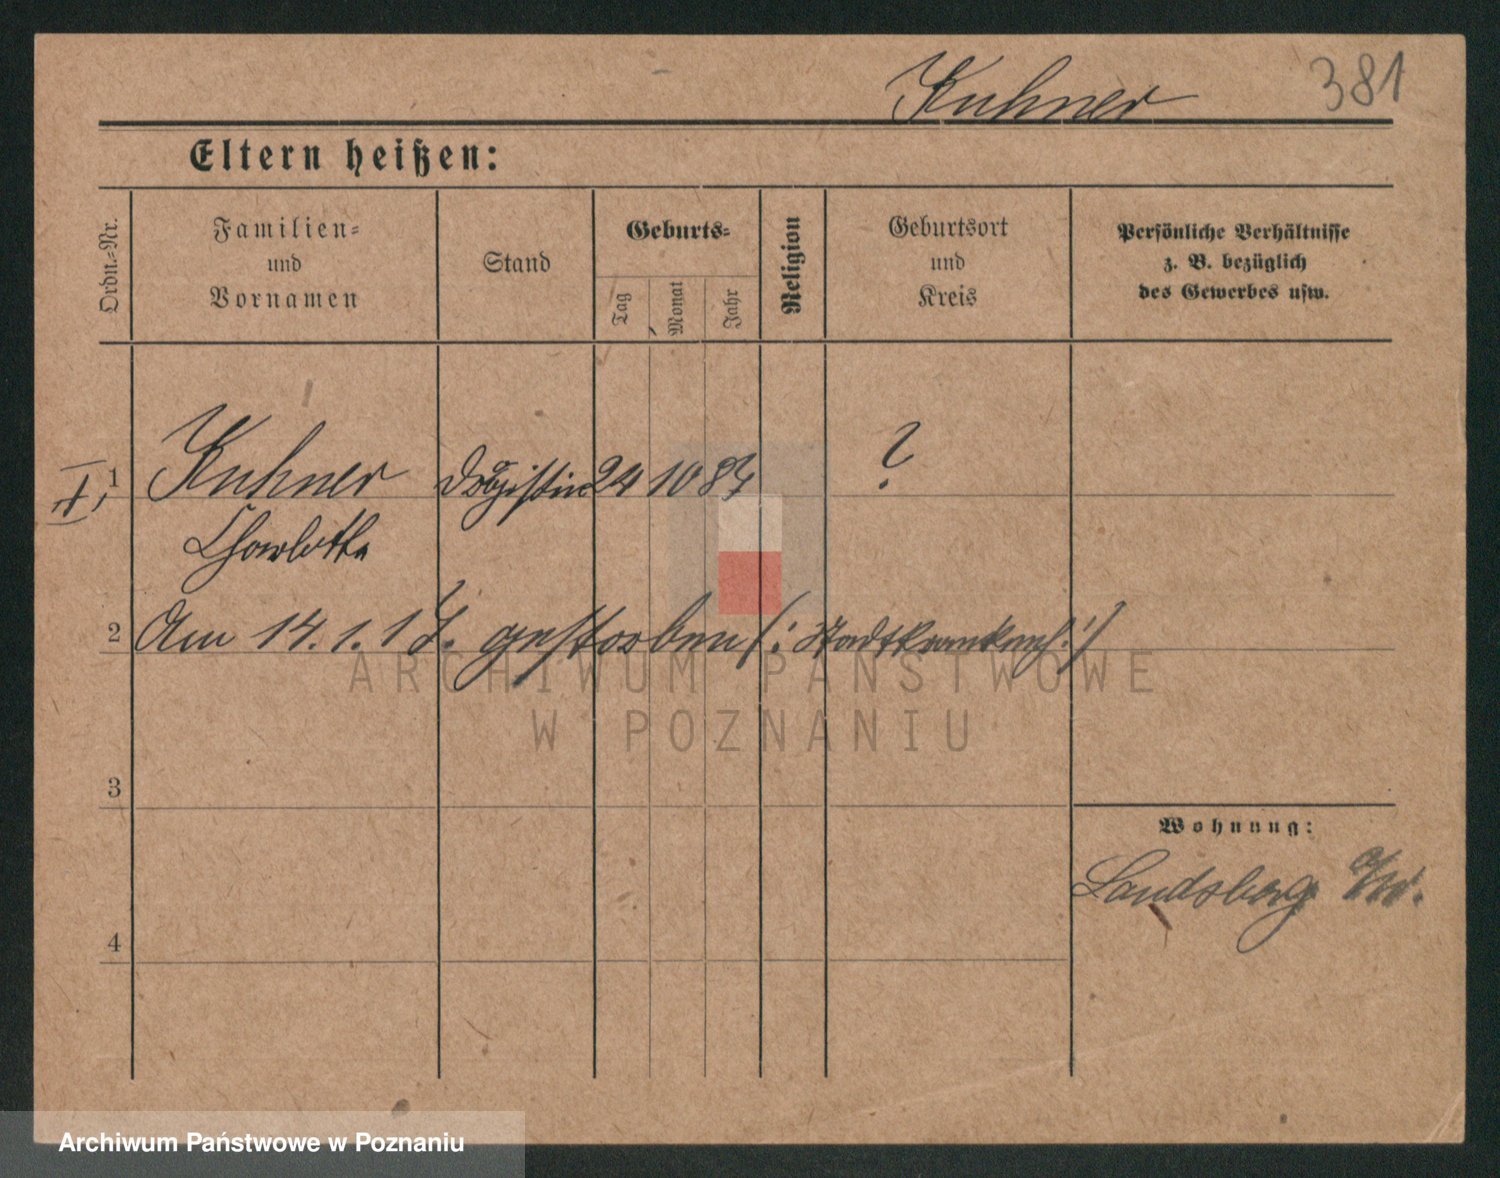 Kuhner 381
Eltern heißen:
Ordn.-Nr.
Familien-
und
Vornamen
Stand
Geburts-
Tag
Monat
Jahr
Religion
Geburtsort
und
Kreis
Persönliche Verhältnisse
z. B. bezüglich
des Gewerbes usw.
1 Kuhner 24 10 ?
Charlotte
2 Am 14.1.17. gestorben (: Stadtkrankenh. :)
3
Wohnung:
Landsberg a/W.
4
ARCHIWUM PAŃSTWOWE
W POZNANIU
Archiwum Państwowe w Poznaniu